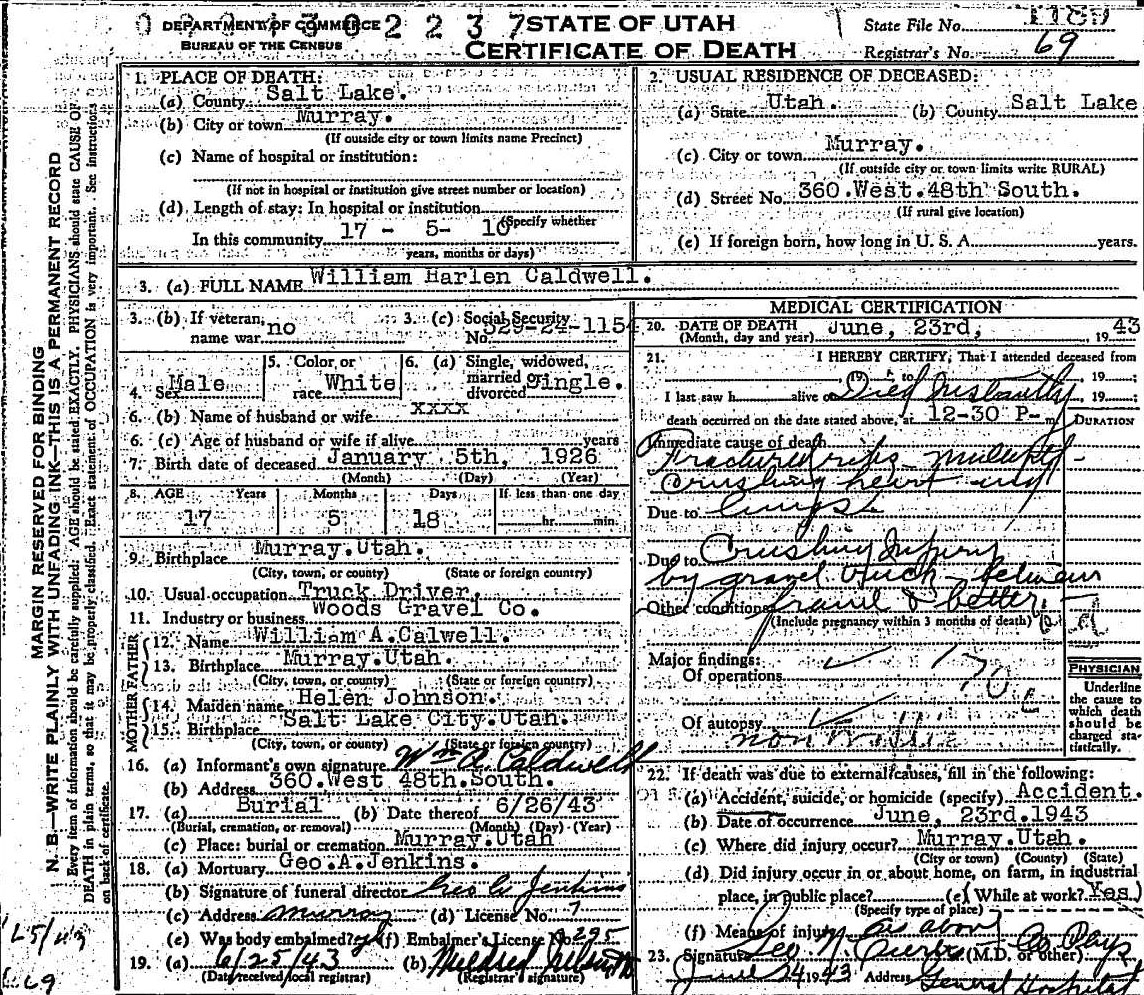 0 2 2 4 3 0 2 2 3 7
DEPARTMENT OF COMMERCE
BUREAU OF THE CENSUS
STATE OF UTAH
CERTIFICATE OF DEATH
State File No.
Registrar's No. 69
MARGIN RESERVED FOR BINDING
N. B.—WRITE PLAINLY WITH UNFADING INK—THIS IS A PERMANENT RECORD
Every item of information should be carefully supplied. AGE should be stated EXACTLY. PHYSICIANS should state CAUSE OF
DEATH in plain terms, so that it may be properly classified. Exact statement of OCCUPATION is very important. See instructions
on back of certificate.
1. PLACE OF DEATH:
(a) County Salt Lake.
(b) City or town Murray.
(If outside city or town limits name Precinct)
(c) Name of hospital or institution:
(If not in hospital or institution give street number or location)
(d) Length of stay: In hospital or institution
(Specify whether
In this community 17 - 5- 10
years, months or days)
2. USUAL RESIDENCE OF DECEASED:
(a) State Utah. (b) County Salt Lake
(c) City or town Murray.
(If outside city or town limits write RURAL)
(d) Street No. 360.West.48th South.
(If rural give location)
(e) If foreign born, how long in U. S. A. years.
3. (a) FULL NAME William Harlen Caldwell.
3. (b) If veteran, name war no
3. (c) Social Security No. 529-24-1154
4. Sex Male
5. Color or race White
6. (a) Single, widowed, married or divorced Single.
6. (b) Name of husband or wife xxxx
6. (c) Age of husband or wife if alive years
7. Birth date of deceased January 5th, 1926
(Month) (Day) (Year)
8. AGE Years Months Days If less than one day
17 5 18 hr. min.
9. Birthplace Murray.Utah.
(City, town, or county) (State or foreign country)
10. Usual occupation Truck Driver.
11. Industry or business Woods Gravel Co.
FATHER
12. Name William A.Calwell.
13. Birthplace Murray.Utah.
(City, town, or county) (State or foreign country)
MOTHER
14. Maiden name Helen Johnson.
15. Birthplace Salt Lake City.Utah.
(City, town, or county) (State or foreign country)
16. (a) Informant's own signature Wm A. Caldwell
(b) Address 360.West 48th.South.
17. (a) Burial (b) Date thereof 6/26/43
(Burial, cremation, or removal) (Month) (Day) (Year)
(c) Place: burial or cremation Murray.Utah
18. (a) Mortuary Geo.A.Jenkins.
(b) Signature of funeral director Geo A Jenkins
(c) Address Murray (d) License No. 7
(e) Was body embalmed? (f) Embalmer's License No. 295
19. (a) 6/25/43 (b) Mildred
(Date received local registrar) (Registrar's signature)
MEDICAL CERTIFICATION
20. DATE OF DEATH June, 23rd, 1943
(Month, day and year)
21. I HEREBY CERTIFY, That I attended deceased from
, 19 to , 19 ;
I last saw h alive on Died Instantly , 19 ;
death occurred on the date stated above, at 12-30 P- m.
DURATION
Immediate cause of death
Fractured ribs - multiple -
Crushing heart and
Due to lungs
Due to Crushing Injury
by gravel truck - between
Other conditions
(Include pregnancy within 3 months of death)
Major findings:
Of operations
Of autopsy
PHYSICIAN
Underline
the cause to
which death
should be
charged sta-
tistically.
22. If death was due to external causes, fill in the following:
(a) Accident, suicide, or homicide (specify) Accident.
(b) Date of occurrence June, 23rd.1943
(c) Where did injury occur? Murray.Utah.
(City or town) (County) (State)
(d) Did injury occur in or about home, on farm, in industrial
place, in public place? (e) While at work? Yes
(Specify type of place)
(f) Means of injury as above
23. Signature Geo N. (M.D. or other)
June 24 1943 Address General Hospital